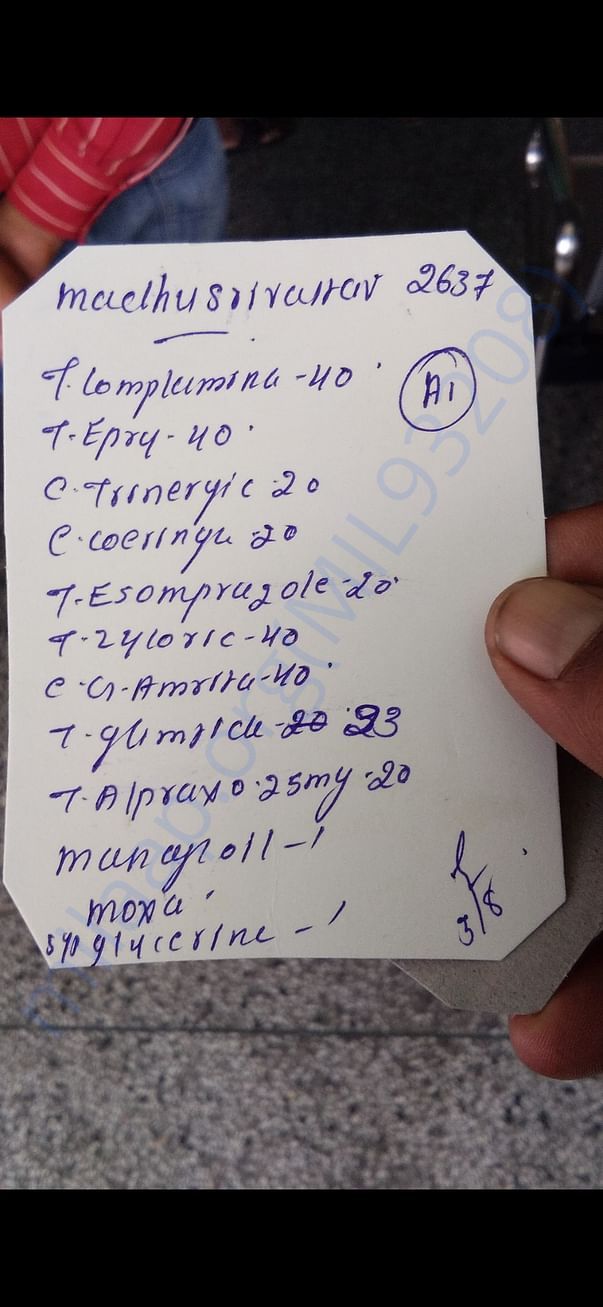 madhusrivastav 2637
T. Complamina - 40
A1
T. Epry - 40
C. Trinergic 20
C. coeringa 20
T. Esomprazole - 20
T. Zyloric - 40
C. G. Amrita - 40
T. glimside - 20 23
T. Alprax 0.25mg 20
manaproll - 1
moxa
syp glycerine - 1
3/8
milaap.org(MIL932208)